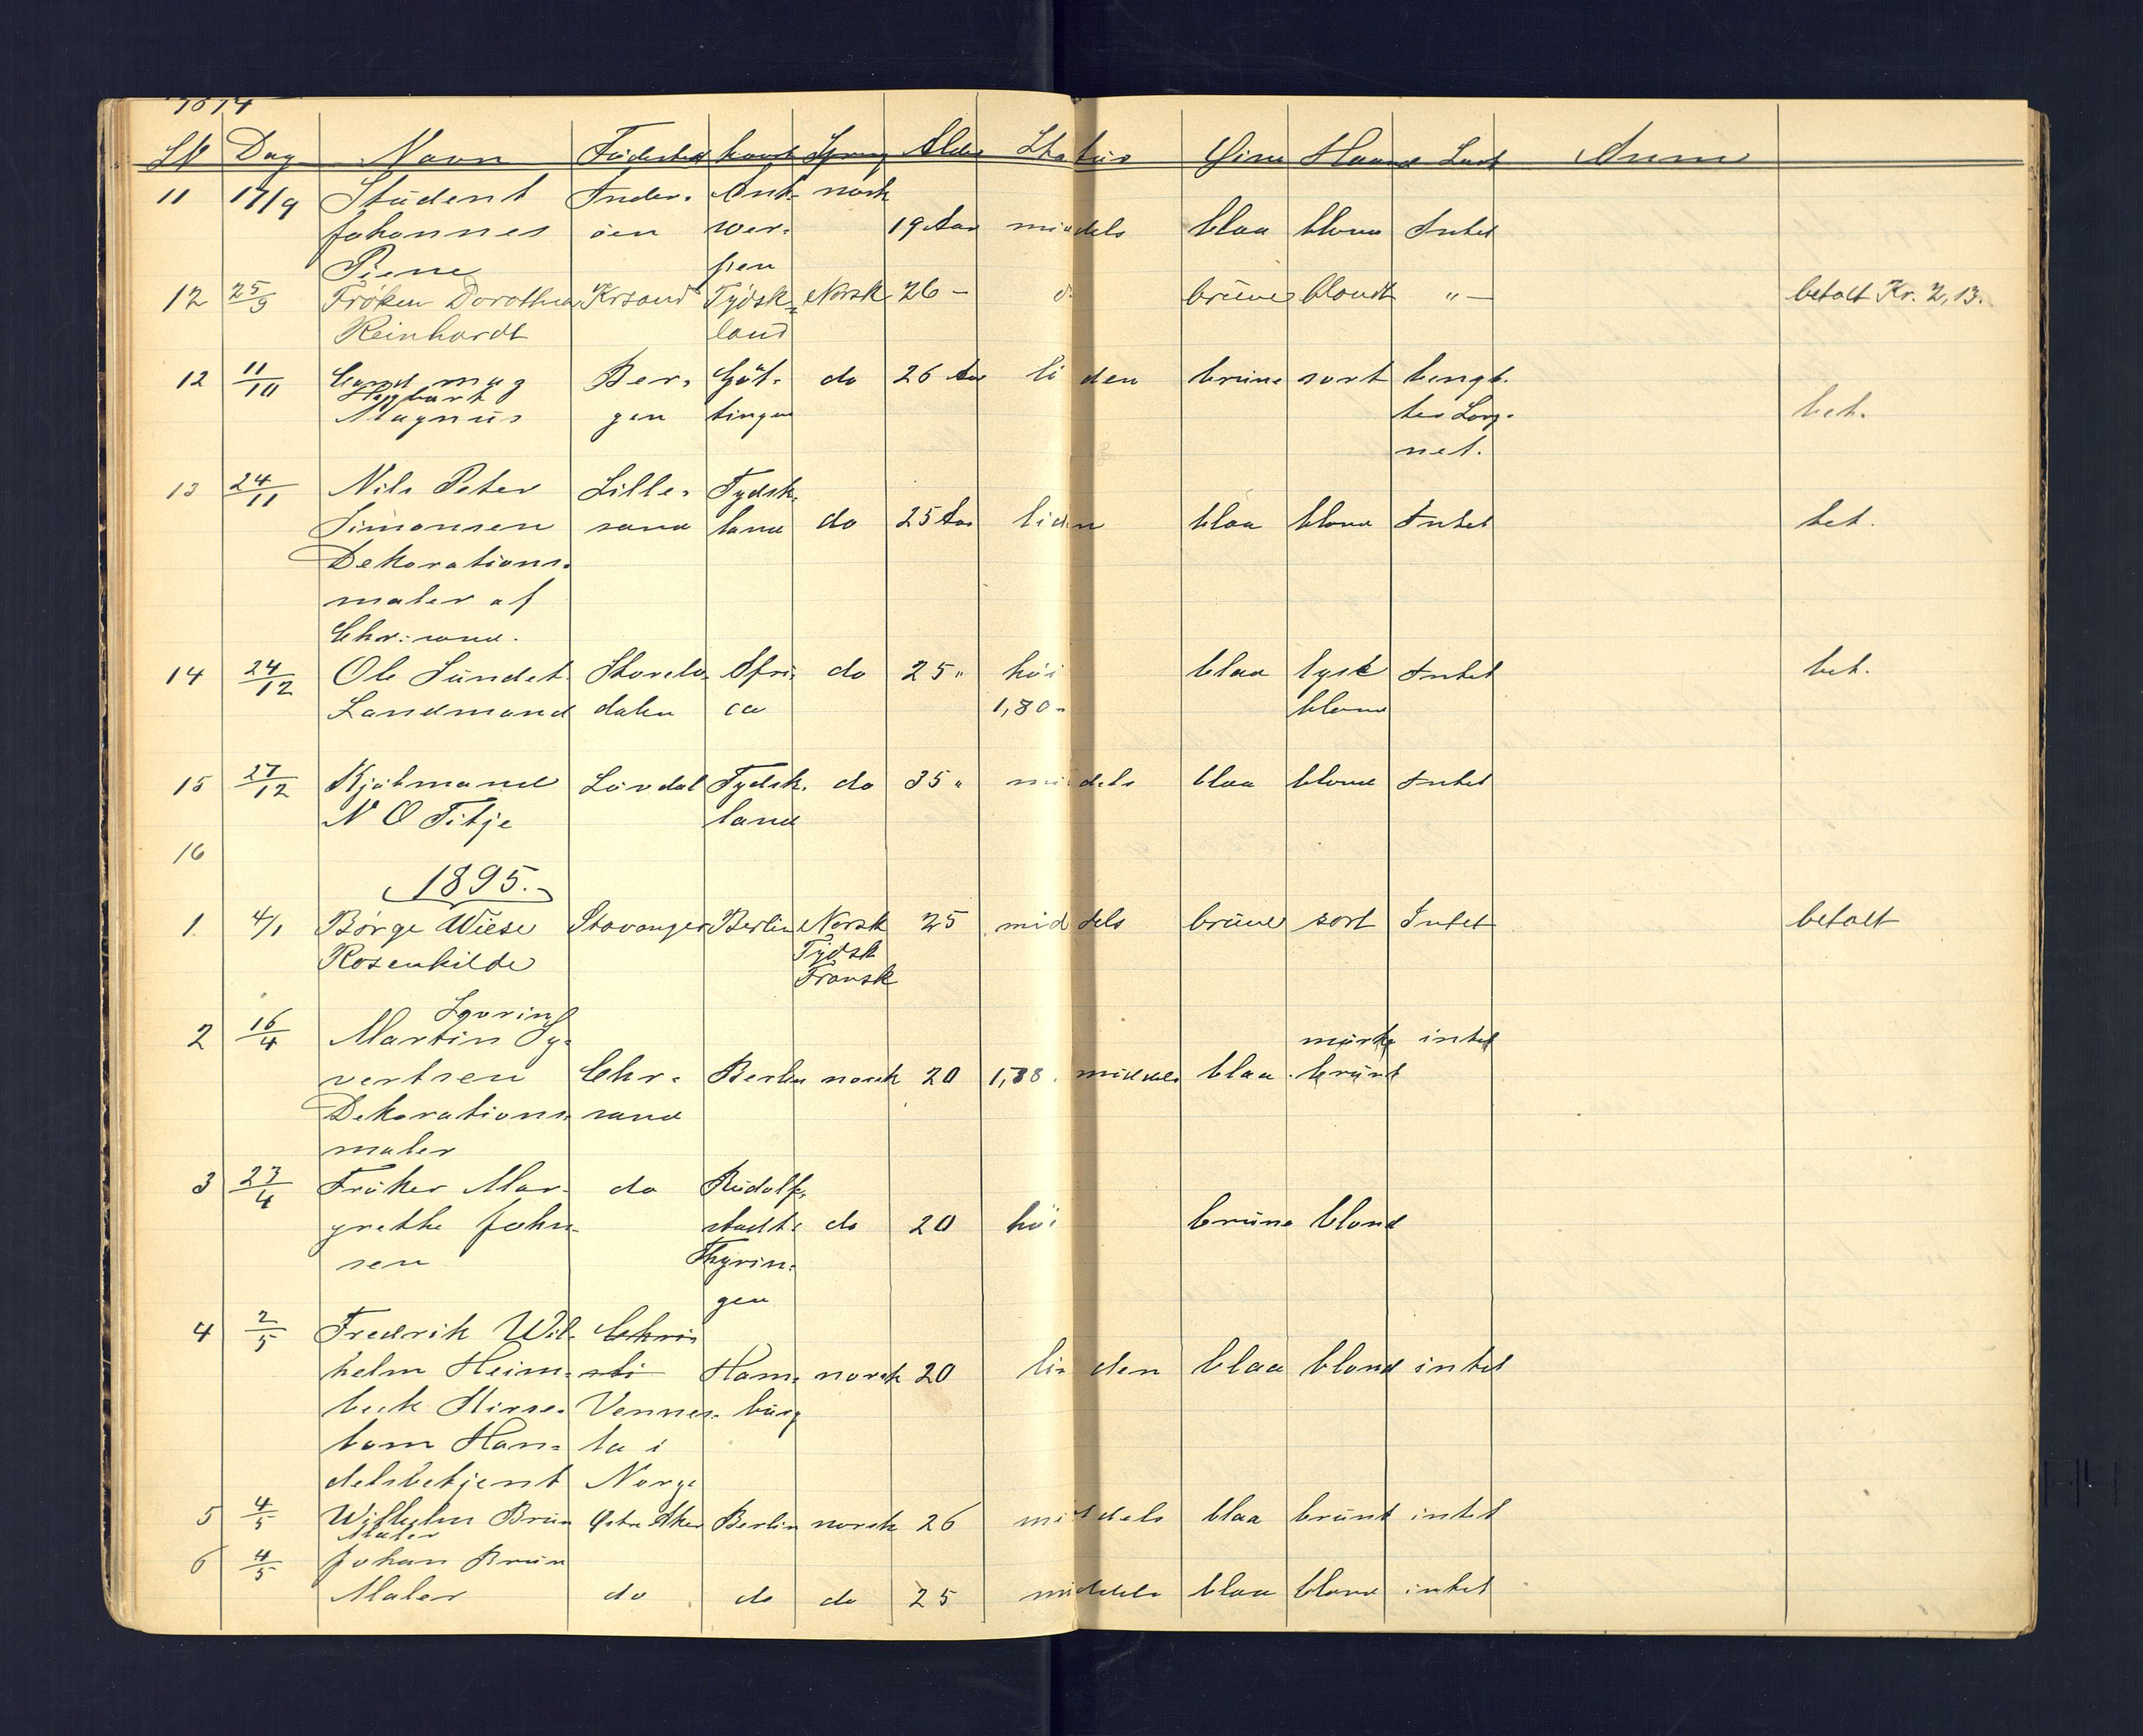 Dag Navn Födested Sprog Alder Statur Öine Haar Anm
11 17/9 Student Inder- Ant- norsk
Johannes öen wer- 19 Aar middels blaa blond Intet
Piene pen
12 25/9 Frøken Dorothea Krsand Tydsk- Norsk 26 – d. brune blondt "– betalt Kr. 2,13.
Reinhardt land
12 11/10 Cand mag Ber- Göt- do 26 Aar liden brune sort
Magnus gen tingen bet.
net.
13 24/11 Nils Peter Lille- Tydsk-
Simonsen sand land do 25 Aar liden blaa blond Intet bet.
Dekorations-
maler af
Chr.sand.
14 24/12 Ole Sundet Afri- do 25 " höi blaa lyst Intet bet.
Landmand dalen ca 1,80 blond
15 27/12 Kjöbmand Tydsk- do 35 " middels blaa blond Intet
N O Titje land
16
1895.
1 4/1 Børge Wiese Stavanger Berlin Norsk 25 middels brune sort Intet betalt
Rosenkilde Tydsk
Fransk
2 16/4 Martin Sy- mörk intet
vertsen Chr- Berlin norsk 20 middels blaa brunt
Dekorations- sand
maler
3 23/4 Fröken Mar- do Rudolf-
grethe John- stadt do 20 höi brune blond
sen Thyrin-
gen
4 2/5 Fredrik Wil- Chris
helm Heim- sti Ham- norsk 20 liden blaa blond intet
beck Hirse- Vennes- burg
bom Han- la i
delsbetjent Norge
5 4/5 Wilhelm Brun Østre Aker Berlin norsk 26 middels blaa brunt intet
Maler
6 4/5 Johan Brun
Maler do do do 25 middels blaa blond intet